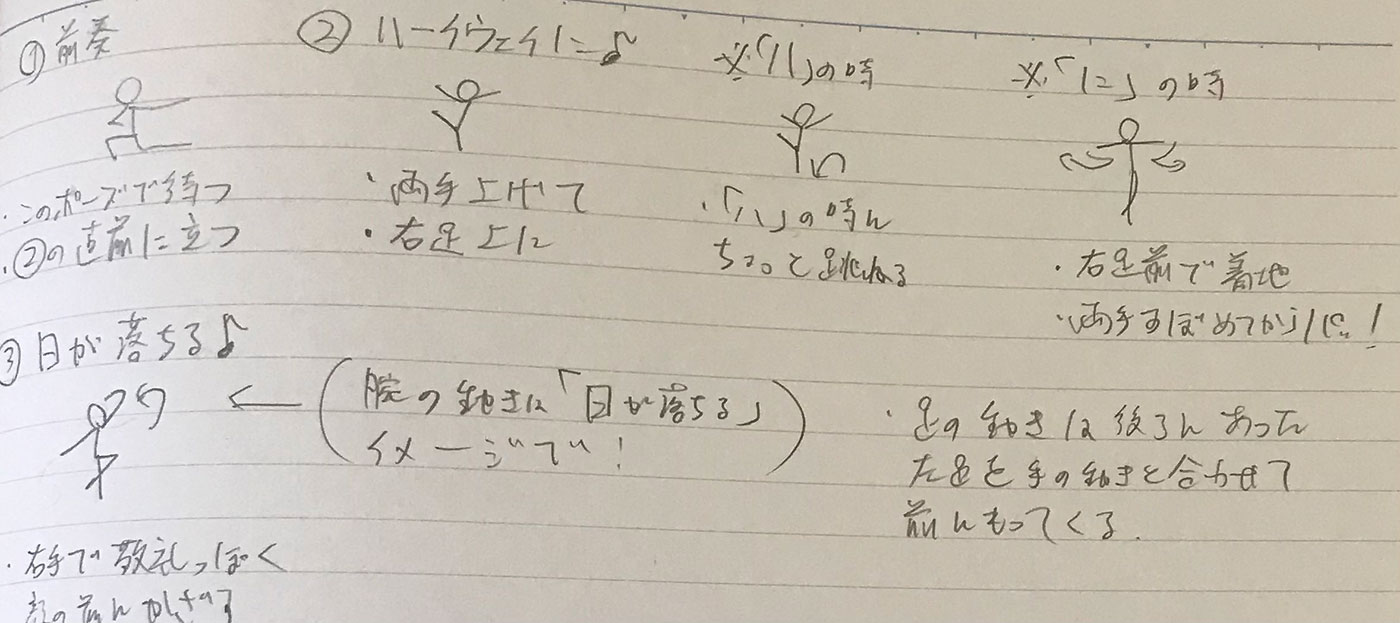 ①前奏
・このポーズで待つ
・②の直前に立つ
②ハーイウェイに♪
・両手上げて
・右足上に
※「ハ」の時
・「ハ」の時に
ちょっと跳ねる
※「に」の時
・右足前で着地
・両手すぼめてから/に!
③日が落ちる♪
腕の動きは「日が落ちる」
イメージで!
・足の動きは後ろにあった
左足を手の動きと合わせて
前にもってくる.
・右手で敬礼っぽく
顔の前に